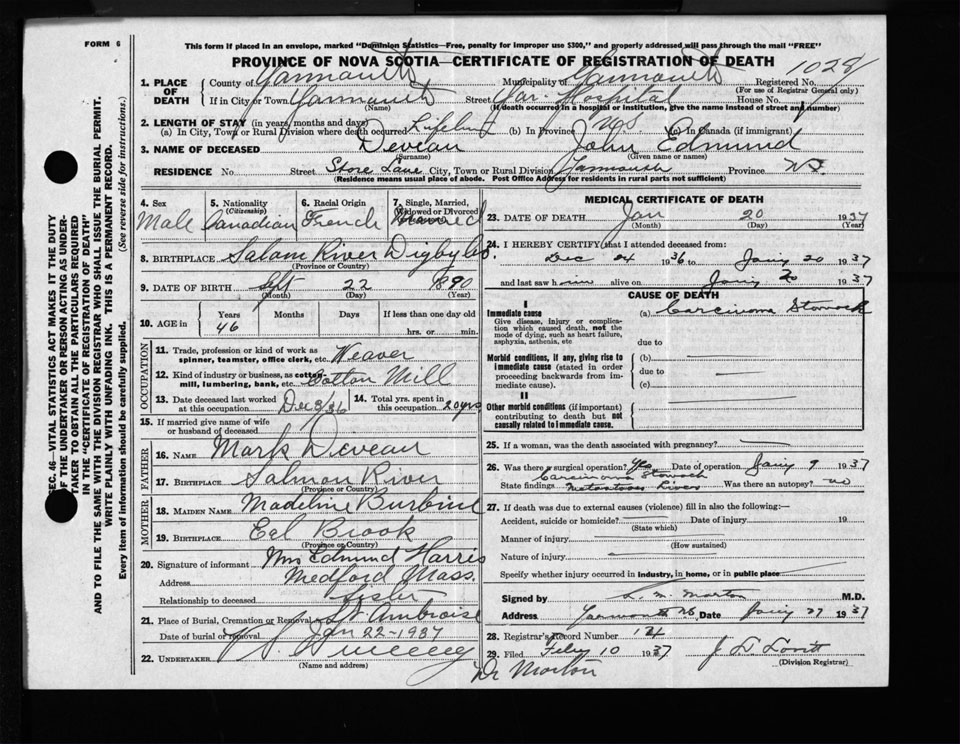 FORM 6
This form if placed in an envelope, marked "Dominion Statistics—Free, penalty for improper use $300," and properly addressed will pass through the mail "FREE"
PROVINCE OF NOVA SCOTIA—CERTIFICATE OF REGISTRATION OF DEATH
1028
1. PLACE OF DEATH County of Yarmouth Municipality of Yarmouth Registered No.
(For use of Registrar General only)
If in City or Town Yarmouth Street Yar. Hospital House No.
(Name) (If death occurred in a hospital or institution, give the name instead of street and number)
2. LENGTH OF STAY (in years, months and days)
(a) In City, Town or Rural Division where death occurred Lifelong (b) In Province N.S. (c) In Canada (if immigrant)
3. NAME OF DECEASED Deveau John Edmund
(Surname) (Given name or names)
RESIDENCE No. Street Lane City, Town or Rural Division Yarmouth Province NS
(Residence means usual place of abode. Post Office Address for residents in rural parts not sufficient)
SEC. 46—VITAL STATISTICS ACT MAKES IT THE DUTY
OF THE UNDERTAKER OR PERSON ACTING AS UNDER-
TAKER TO OBTAIN ALL THE PARTICULARS REQUIRED
IN THE "CERTIFICATE OF REGISTRATION OF DEATH"
AND TO FILE THE SAME WITH THE DIVISION REGISTRAR WHO SHALL ISSUE THE BURIAL PERMIT.
WRITE PLAINLY WITH UNFADING INK. THIS IS A PERMANENT RECORD.
Every item of information should be carefully supplied. (See reverse side for instructions.)
4. Sex Male
5. Nationality (Citizenship) Canadian
6. Racial Origin French
7. Single, Married, Widowed or Divorced
8. BIRTHPLACE Salmon River Digby Co.
(Province or Country)
9. DATE OF BIRTH Sept 22 1890
(Month) (Day) (Year)
10. AGE in Years Months Days If less than one day old
46 hrs. or min.
OCCUPATION
11. Trade, profession or kind of work as spinner, teamster, office clerk, etc. Weaver
12. Kind of industry or business, as cotton mill, lumbering, bank, etc. Cotton Mill
13. Date deceased last worked at this occupation Dec 3/36 14. Total yrs. spent in this occupation 20 yrs
15. If married give name of wife or husband of deceased
FATHER
16. NAME Mark Deveau
17. BIRTHPLACE Salmon River
(Province or Country)
MOTHER
18. MAIDEN NAME Madeline
19. BIRTHPLACE Eel Brook
(Province or Country)
20. Signature of informant Mrs Edmund Harris
Address Medford Mass.
Relationship to deceased Sister
21. Place of Burial, Cremation or Removal St. Ambroise
Date of burial or removal Jan 22-1937
22. UNDERTAKER
(Name and address)
MEDICAL CERTIFICATE OF DEATH
23. DATE OF DEATH Jan 20 1937
(Month) (Day) (Year)
24. I HEREBY CERTIFY that I attended deceased from:
Dec 24 1936 to Jany 20 1937
and last saw him alive on Jany 20 1937
CAUSE OF DEATH
I
Immediate cause (a) Carcinoma Stomach
Give disease, injury or complication which caused death, not the mode of dying, such as heart failure, asphyxia, asthenia, etc due to
Morbid conditions, if any, giving rise to immediate cause (stated in order proceeding backwards from immediate cause). (b)
due to
(c)
II
Other morbid conditions (if important) contributing to death but not causally related to immediate cause.
25. If a woman, was the death associated with pregnancy?
26. Was there a surgical operation? Yes Date of operation Jany 9 1937
State findings Carcinoma Stomach Liver Was there an autopsy? no
27. If death was due to external causes (violence) fill in also the following:—
Accident, suicide or homicide? Date of injury 19
(State which)
Manner of injury
(How sustained)
Nature of injury
Specify whether injury occurred in industry, in home, or in public place
Signed by Morton M.D.
Address Yarmouth NS Date Jany 27 1937
28. Registrar's Record Number 12
29. Filed Feby 10 1937 J L Lovitt
(Division Registrar)
Dr Morton